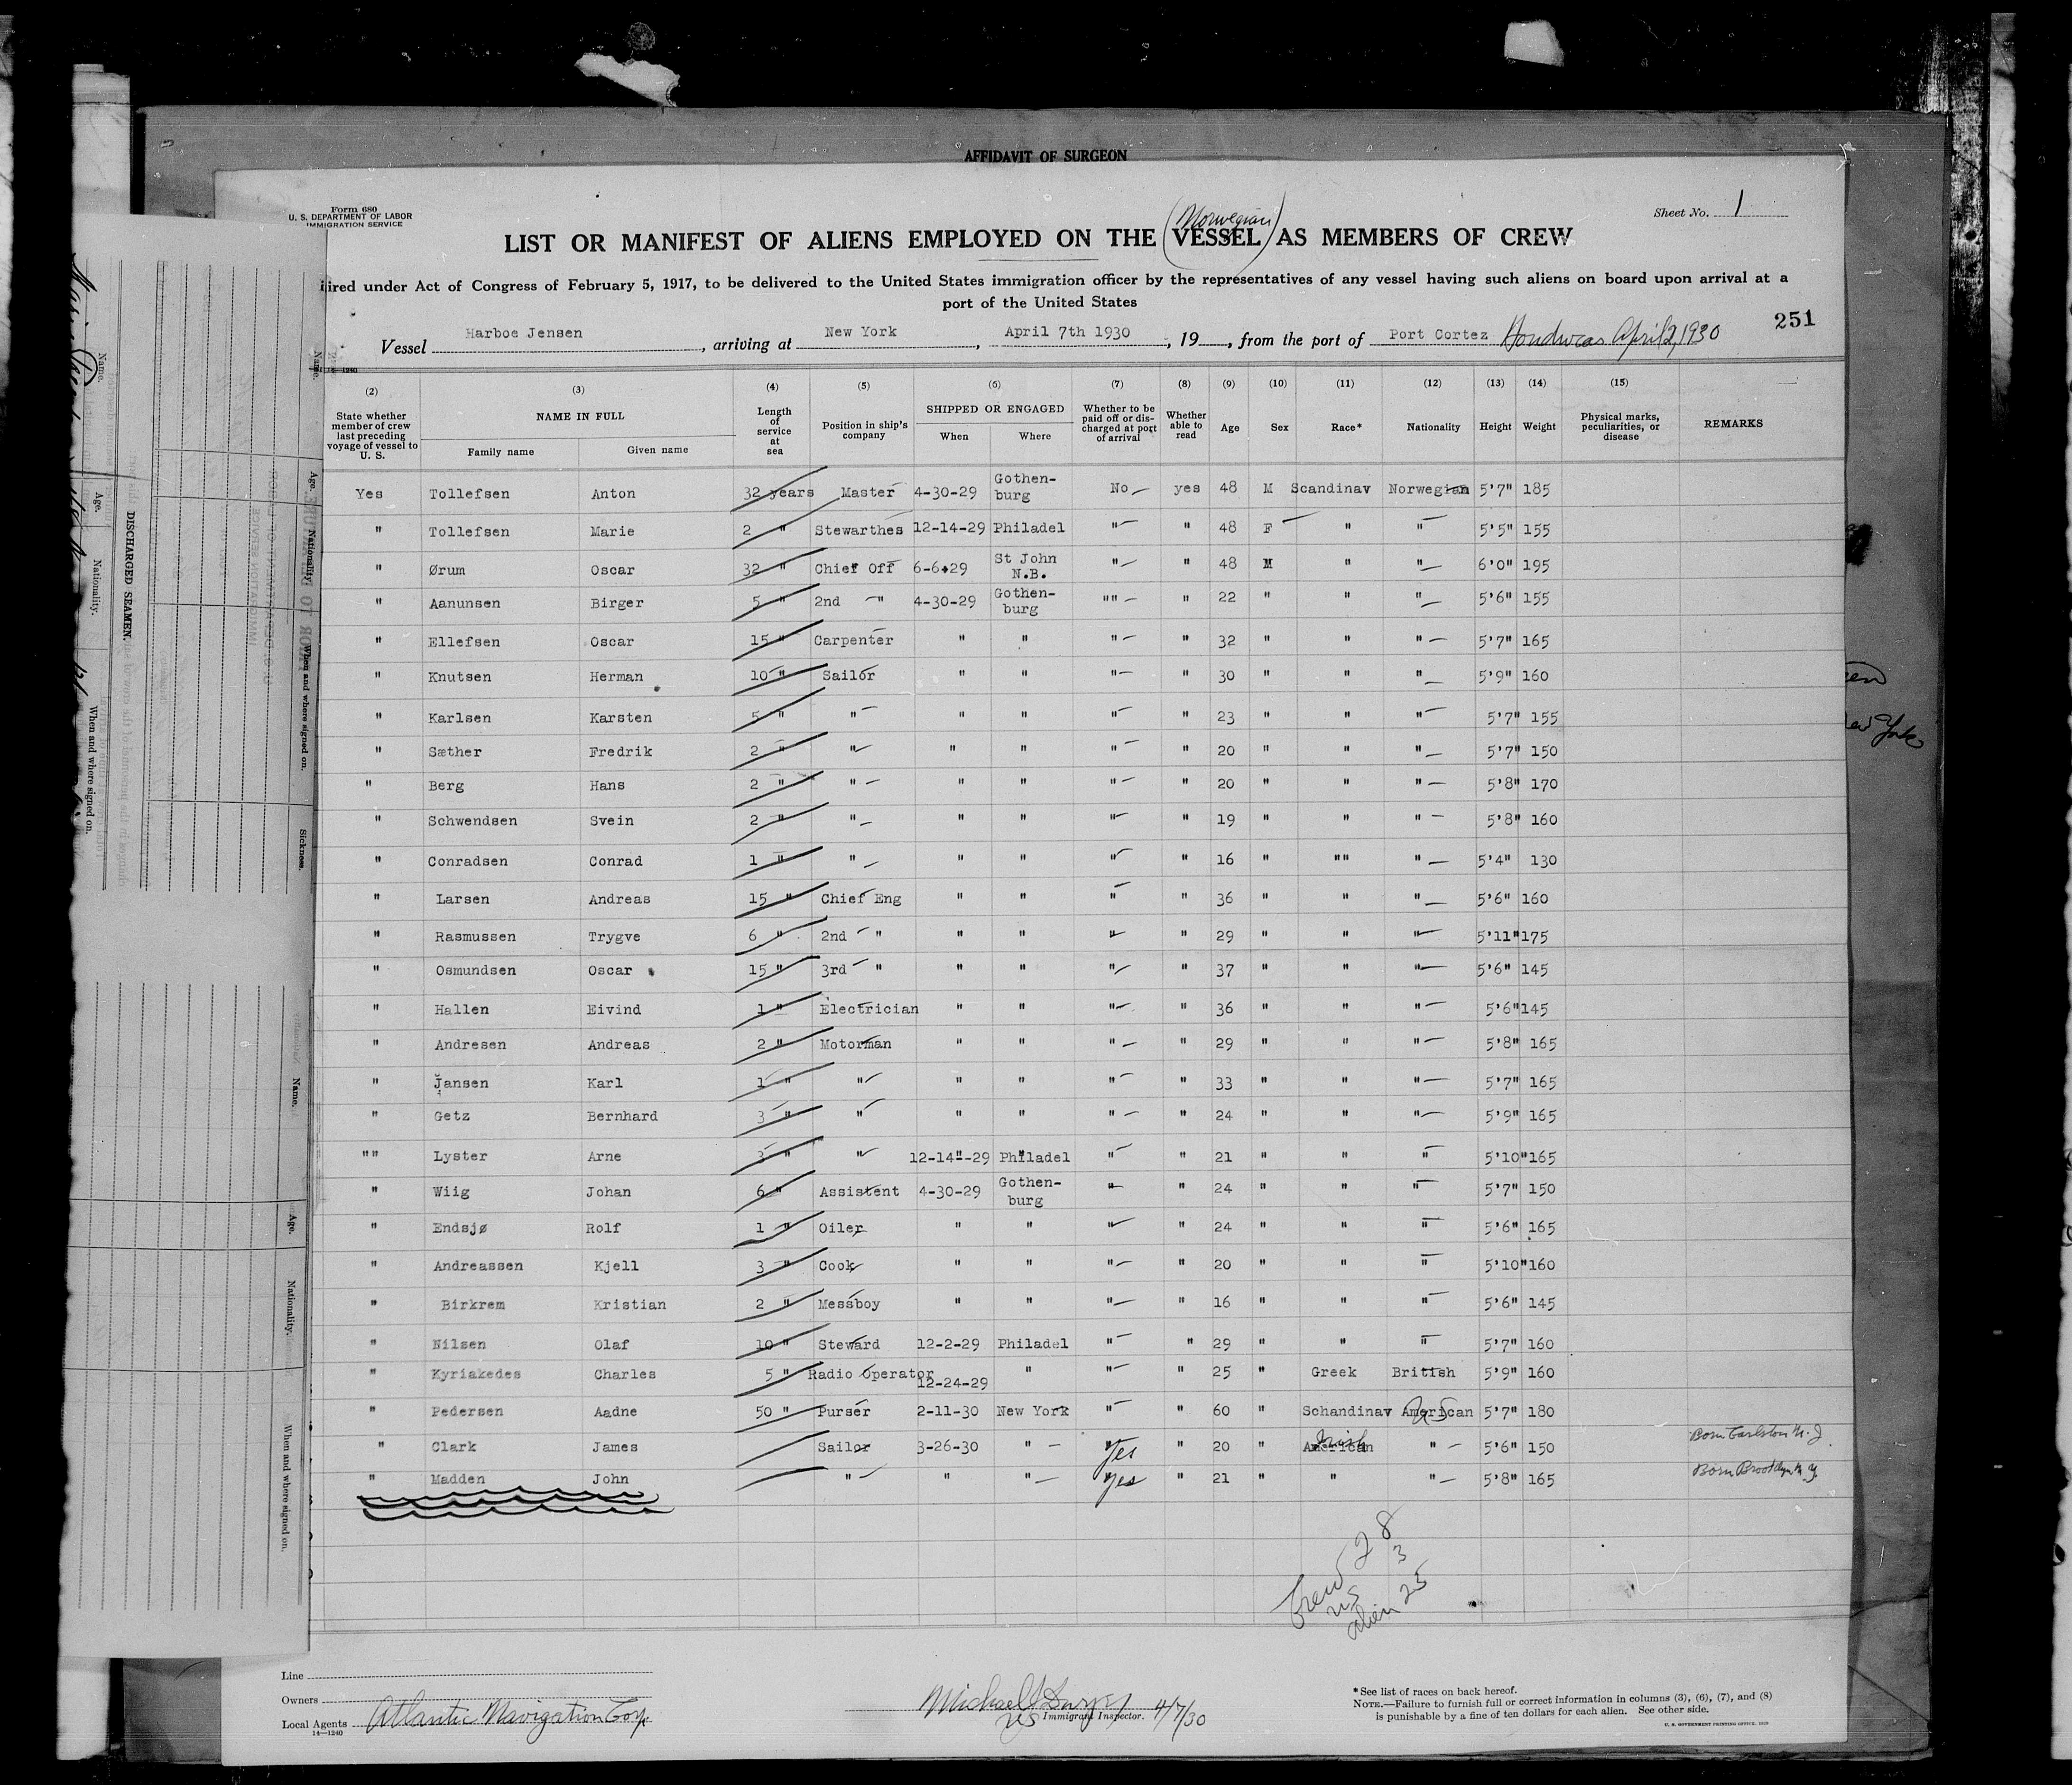 AFFIDAVIT OF SURGEON
Form 680
U. S. DEPARTMENT OF LABOR
IMMIGRATION SERVICE
Sheet No. 1
(Norwegian)
LIST OR MANIFEST OF ALIENS EMPLOYED ON THE VESSEL AS MEMBERS OF CREW
ired under Act of Congress of February 5, 1917, to be delivered to the United States immigration officer by the representatives of any vessel having such aliens on board upon arrival at a
port of the United States
251
Vessel Harboe Jensen, arriving at New York, April 7th 1930, 19, from the port of Port Cortez Honduras April 2, 1930
(2) (3) (4) (5) (6) (7) (8) (9) (10) (11) (12) (13) (14) (15)
State whether member of crew last preceding voyage of vessel to U. S. | NAME IN FULL Family name Given name | Length of service at sea | Position in ship's company | SHIPPED OR ENGAGED When Where | Whether to be paid off or discharged at port of arrival | Whether able to read | Age | Sex | Race* | Nationality | Height | Weight | Physical marks, peculiarities, or disease | REMARKS
Yes Tollefsen Anton 32 years Master 4-30-29 Gothen-burg No yes 48 M Scandinav Norwegian 5'7" 185
" Tollefsen Marie 2 " Stewarthes 12-14-29 Philadel " " 48 F " " 5'5" 155
" Ørum Oscar 32 " Chief Off 6-6-29 St John N.B. " " 48 M " " 6'0" 195
" Aanunsen Birger 5 " 2nd " 4-30-29 Gothen-burg "" " 22 " " " 5'6" 155
" Ellefsen Oscar 15 " Carpenter " " " " 32 " " " 5'7" 165
" Knutsen Herman 10 " Sailor " " " " 30 " " " 5'9" 160
" Karlsen Karsten 5 " " " " " " 23 " " " 5'7" 155
" Sæther Fredrik 2 " " " " " " 20 " " " 5'7" 150
" Berg Hans 2 " " " " " " 20 " " " 5'8" 170
" Schwendsen Svein 2 " " " " " " 19 " " " 5'8" 160
" Conradsen Conrad 1 " " " " " " 16 " "" " 5'4" 130
" Larsen Andreas 15 " Chief Eng " " " " 36 " " " 5'6" 160
" Rasmussen Trygve 6 " 2nd " " " " " 29 " " " 5'11" 175
" Osmundsen Oscar 15 " 3rd " " " " " 37 " " " 5'6" 145
" Hallen Eivind 1 " Electrician " " " " 36 " " " 5'6" 145
" Andresen Andreas 2 " Motorman " " " " 29 " " " 5'8" 165
" Jansen Karl 1 " " " " " " 33 " " " 5'7" 165
" Getz Bernhard 3 " " " " " " 24 " " " 5'9" 165
"" Lyster Arne 3 " " 12-14-29 Philadel " " 21 " " " 5'10" 165
" Wiig Johan 6 " Assistent 4-30-29 Gothen-burg " " 24 " " " 5'7" 150
" Endsjø Rolf 1 " Oiler " " " " 24 " " " 5'6" 165
" Andreassen Kjell 3 " Cook " " " " 20 " " " 5'10" 160
" Birkrem Kristian 2 " Messboy " " " " 16 " " " 5'6" 145
" Nilsen Olaf 10 " Steward 12-2-29 Philadel " " 29 " " " 5'7" 160
" Kyriakedes Charles 5 " Radio Operator 12-24-29 " " " 25 " Greek British 5'9" 160
" Pedersen Aadne 50 " Purser 2-11-30 New York " " 60 " Schandinav American US 5'7" 180
" Clark James Sailor 3-26-30 " Yes " 20 " American Irish " 5'6" 150 Born Carlston N. J.
" Madden John " " " Yes " 21 " " " 5'8" 165 Born Brooklyn N.Y.
Crew 28
US 3
alien 25
Line
Owners
Local Agents Atlantic Navigation Corp.
14—1240
US Immigrant Inspector. 4/7/30
*See list of races on back hereof.
NOTE.—Failure to furnish full or correct information in columns (3), (6), (7), and (8)
is punishable by a fine of ten dollars for each alien. See other side.
U. S. GOVERNMENT PRINTING OFFICE
DISCHARGED SEAMEN.
Name. Age. Nationality. When and where signed on. Sickness.
Name. Age. Nationality. When and where signed on.